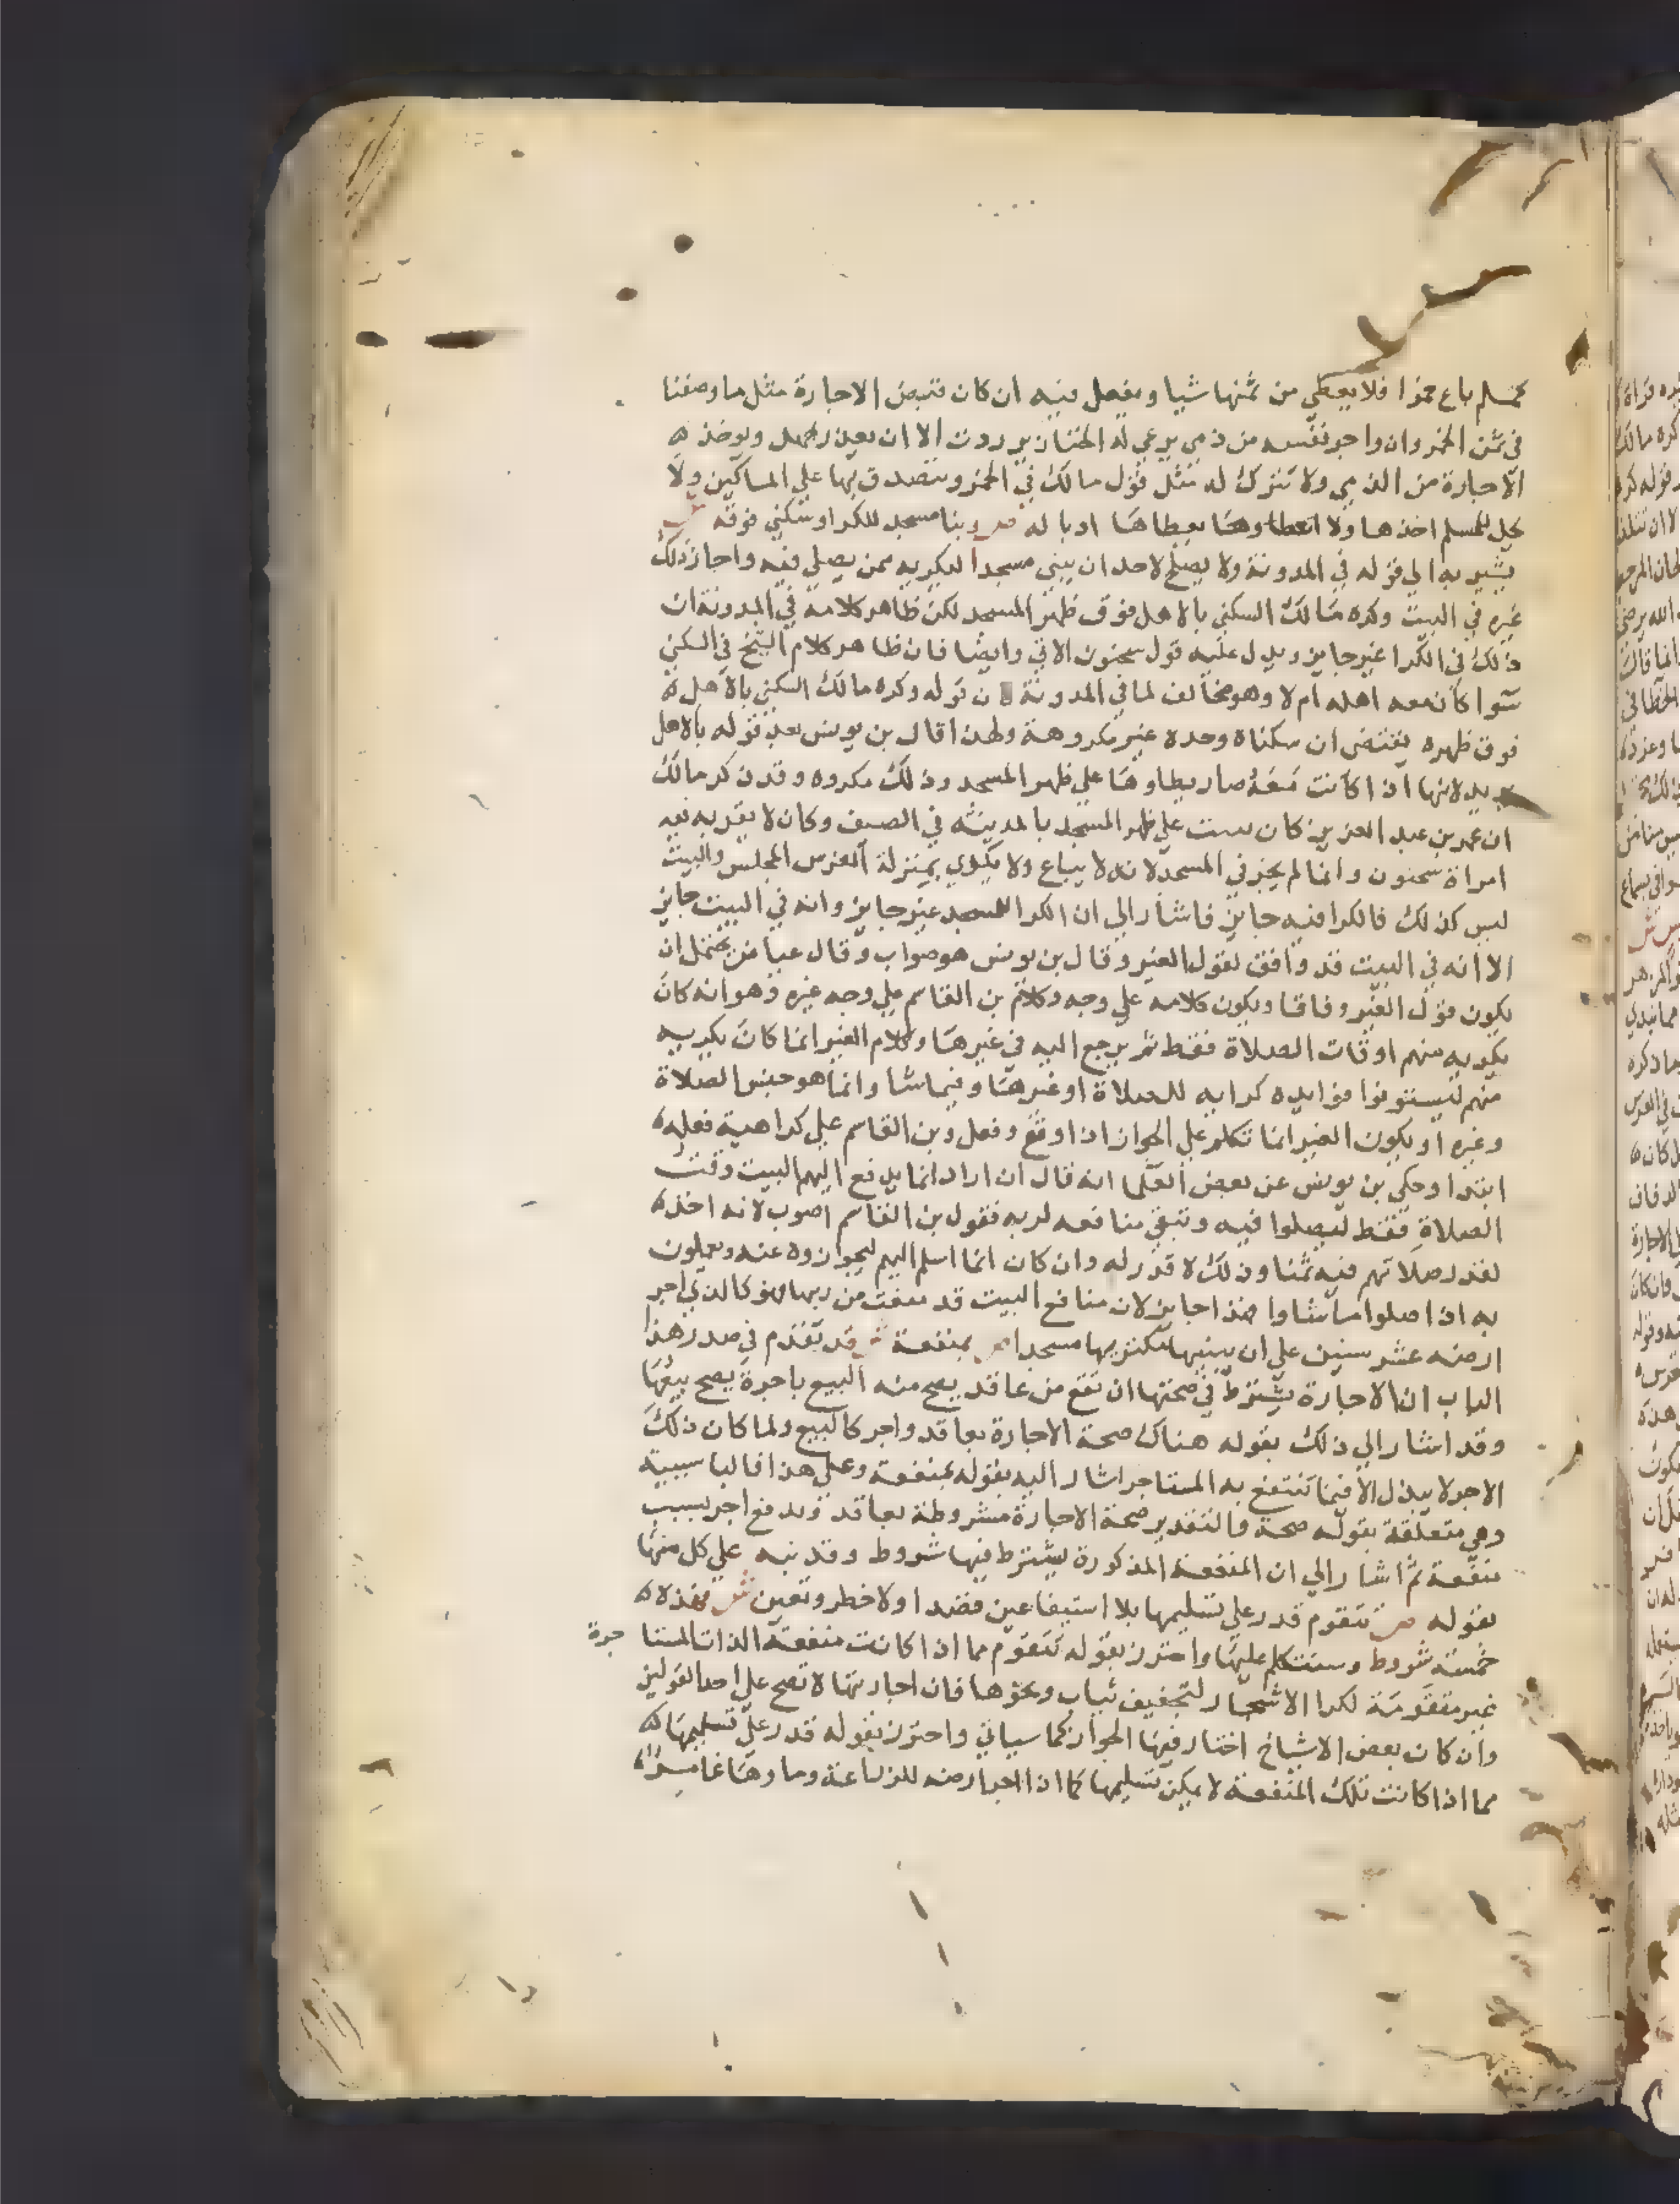 كمسلم باع خمرا فلا يعطي من ثمنها شيا ويفعل فيه ان كان قبض الاجارة مثل ما وصفنا
في ثمن الخمر وان واجر نفسه من ذمي يرعي له الخنازير ردت الا ان يعين رحمه ويوخذ
الاجارة من الذمي ولا تترك له مثل قول مالك في الخمر ويتصدق بها علي المساكين ولا
يحل للمسلم اخذها ولا اعطاوها يعطاها ادبا له ص وبنا مسجد للكرا وسكني فوقه ش
يشير به الي قوله في المدونة ولا يصلح لاحد ان يبني مسجدا ليكريه ممن يصلي فيه واجاز ذلك
غيره في البيت وكره مالك السكني بالاهل فوق ظهر المسجد لكن ظاهر كلامه في المدونة ان
ذلك في الكرا غير جايز ويدل عليه قول سحنون الاتي وايضا فان ظاهر كلام الشيخ في السكني
سوا كان معه اهله ام لا وهو مخالف لما في المدونة ن قوله وكره مالك السكني بالاهل
فوق ظهره يقتضي ان سكناه وحده غير مكروهة ولهذا قال بن يونس بعد قوله بالاهل
يريد لانها اذا كانت معه صار يطاوها علي ظهر المسجد وذلك مكروه وقد ذكر مالك
ان عمر بن عبد العزيز كان يبيت علي ظهر المسجد بالمدينة في الصيف وكان لا يقربه فيه
امراة سحنون وانما لم يجز في المسجد لانه لا يباع ولا يكري بمنزلة الفرس المحبس والبيت
ليس كذلك فالكرا فيه جايز فاشار الي ان الكرا للمسجد غير جايز وانه في البيت جايز
الا انه في البيت قد وافق لقول الغير وقال بن يونس هو صواب وقال عياض يحتمل ان
يكون قول الغير وفاقا ويكون كلامه علي وجه وكلام بن القاسم علي وجه غيره وهو انه كان
يكريه منهم اوقات الصلاة فقط ثم يرجع اليه في غيرها وكلام الغير انما كان يكريه
منهم ليستوفوا فوايده كرايه للصلاة او غيرها وفيما شا وانما هو حبس الصلاة
وغيره او يكون الغير انما تكلم علي الجواز اذا وقع وفعل وبن القاسم علي كراهية فعله
ابتدا وحكي بن يونس عن بعض العلما انه قال ان اراد انما يدفع اليهم البيت وقت
الصلاة فقط ليصلوا فيه وتبقي منافعه لربه فقول بن القاسم اصوب لانه اخذ
لقدر صلاتهم فيه ثمنا وذلك لا قدر له وان كان انما اسلم اليهم ليحوزوه عنه ويعملون
به اذا صلوا ما شاوا فهذا جايز لان منافع البيت قد بيعت من ربها فهو كالذي اجر
ارضه عشر سنين علي ان يبنيها مكتريها مسجدا ص بمنفعة ش قد تقدم في صدر هذا
الباب ان الاجارة يشترط في صحتها ان تقع من عاقد يصح منه البيع باجرة يصح بيعها
وقد اشار الي ذلك بقوله هناك صحة الاجارة بعاقد واجر كالبيع ولما كان ذلك
الاجر لا يبذل الا فيما تنتفع به المستاجر اشار اليه بقوله بمنفعة وعلي هذا فالبا سببية
وهي متعلقة بقوله صحة والتقدير صحة الاجارة مشروطة بعاقد وبدفع اجر بسبب
منفعة ثم اشار الي ان المنفعة المذكورة يشترط فيها شروط وقد نبه علي كل منها
بقوله ص تتقوم قدر علي تسليمها بلا استيفا عين قصدا ولا خطر وتعين ش فهذه
خمسة شروط وسنتكلم عليها واحترز بقوله تتقوم مما اذا كانت منفعة الذات المستا جرة
غير متقومة لكرا الاشجار لتجفيف ثياب ونحوها فان اجارتها لا تصح علي احد القولين
وان كان بعض الاشياخ اختار فيها الجواز كما سياتي واحترز بقوله قدر علي تسليمها
مما اذا كانت تلك المنفعة لا يمكن تسليمها كما اذا اجر ارضه للزراعة وماوها غامر